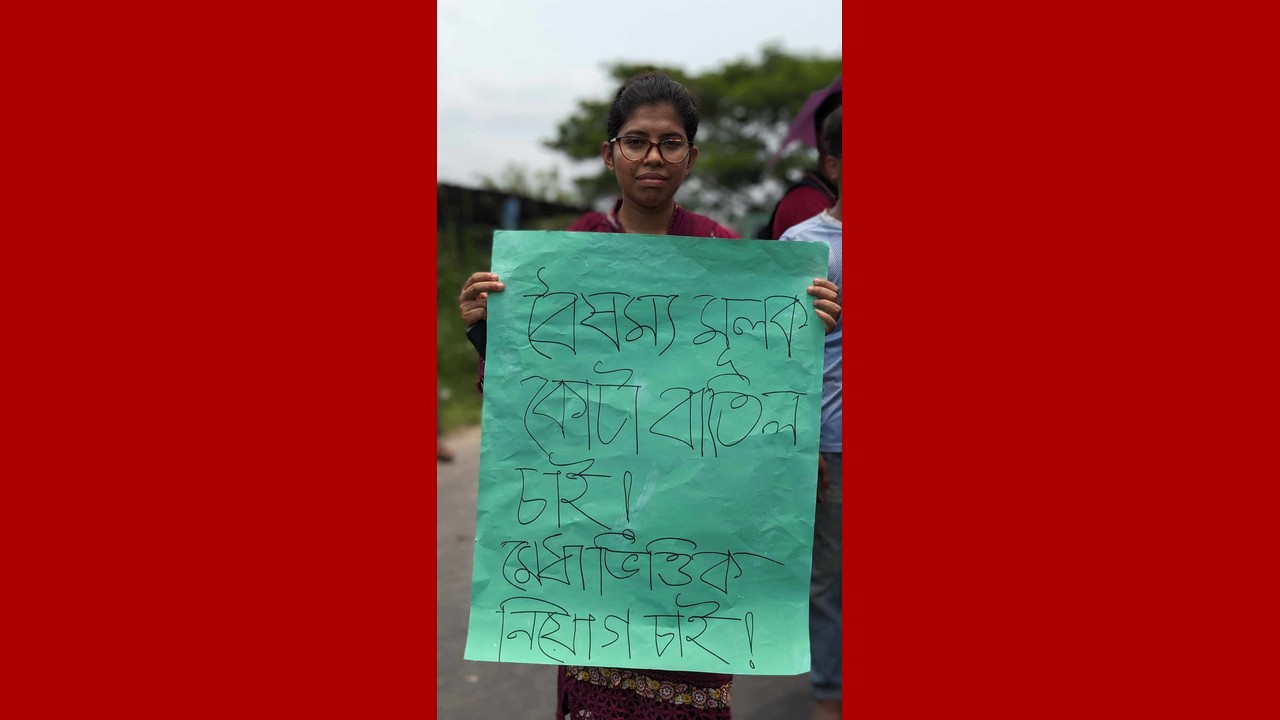 বৈষম্য মূলক
কোটা বাতিল
চাই!
মেধাভিত্তিক
নিয়োগ চাই!